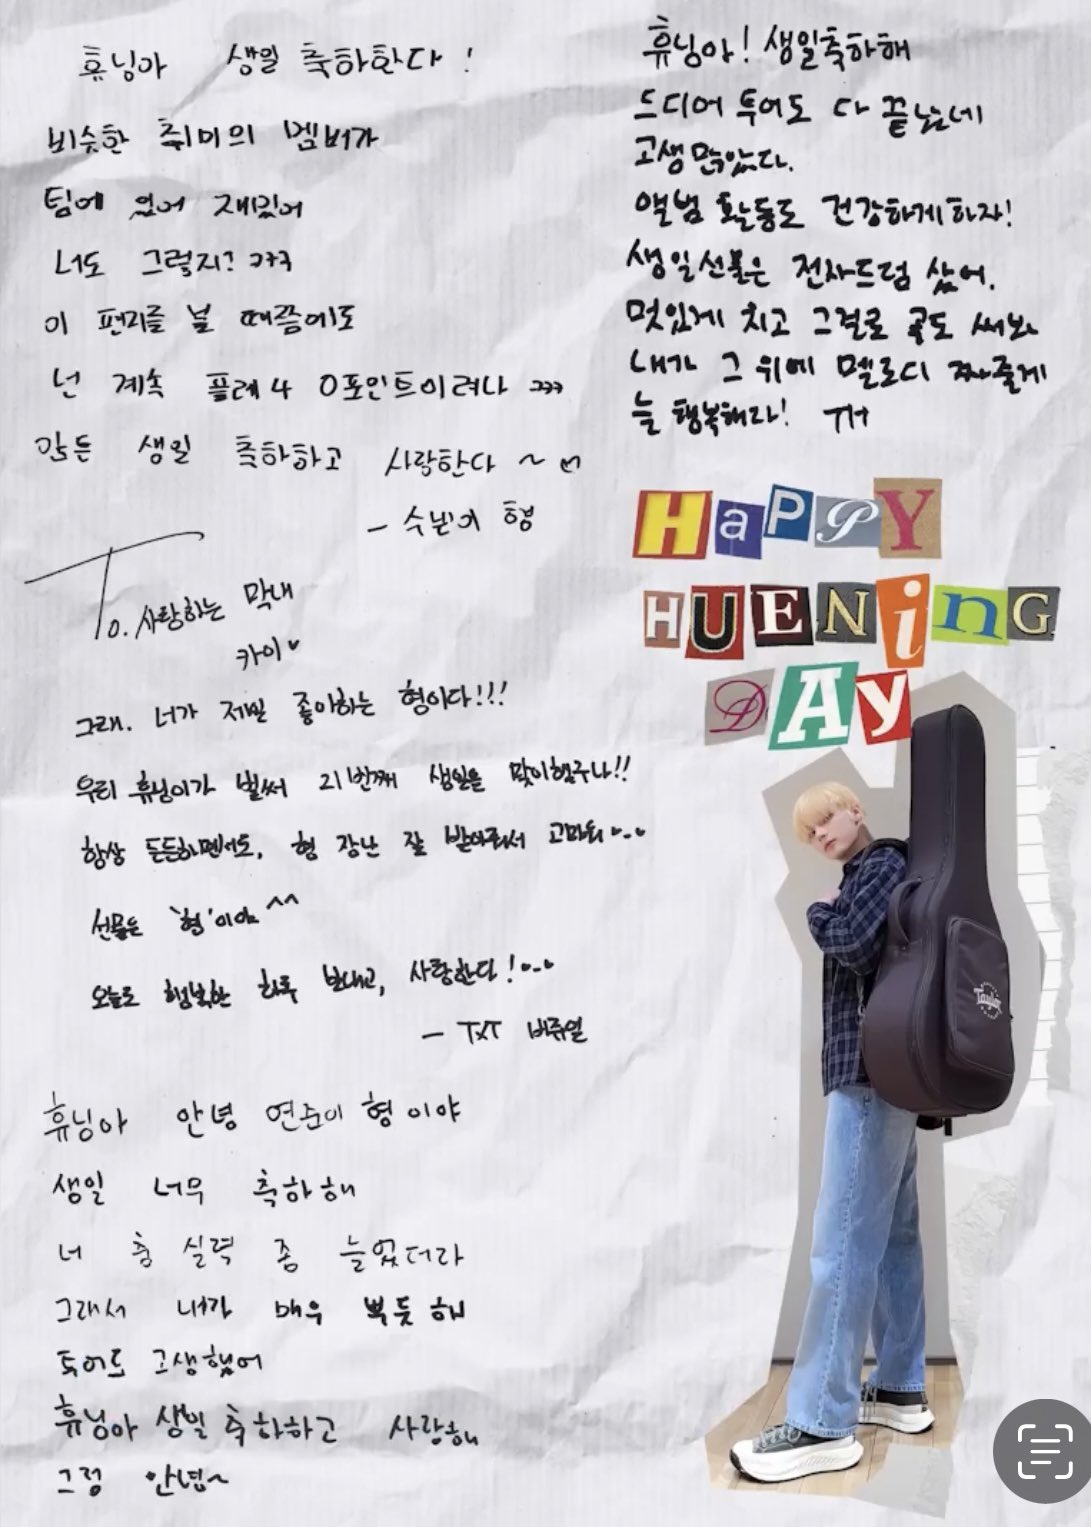 휴닝아 생일 축하한다!
비슷한 취미의 멤버가
팀에 있어 재밌어
너도 그렇지? ㅋㅋㅋ
이 편지를 볼 때쯤에도
넌 계속 플레4 0포인트이려나 ㅋㅋㅋ
암튼 생일 축하하고 사랑한다 ~
- 수빈이 형
To. 사랑하는 막내
카이♥
그래. 너가 제일 좋아하는 형이다!!!
우리 휴닝이가 벌써 21번째 생일을 맞이했구나!!
항상 든든하면서도, 형 장난 잘 받아줘서 고마워
선물은 '형'이야 ^^
오늘도 행복한 하루 보내고, 사랑한다!
- TXT 비쥬얼
휴닝아 안녕 연준이 형이야
생일 너무 축하해
너 춤 실력 좀 늘었더라
그래서 내가 매우 뿌듯해
투어도 고생했어
휴닝아 생일 축하하고 사랑해
그럼 안녕~
휴닝아! 생일축하해
드디어 투어도 다 끝났네
고생 많았다.
앨범 활동도 건강하게하자!
생일선물은 전자드럼 샀어.
멋있게 치고 그걸로 곡도 써봐
내가 그 위에 멜로디 짜줄게
늘 행복해라! TH
HaPPY
HUENiNG
DAY
Taylor